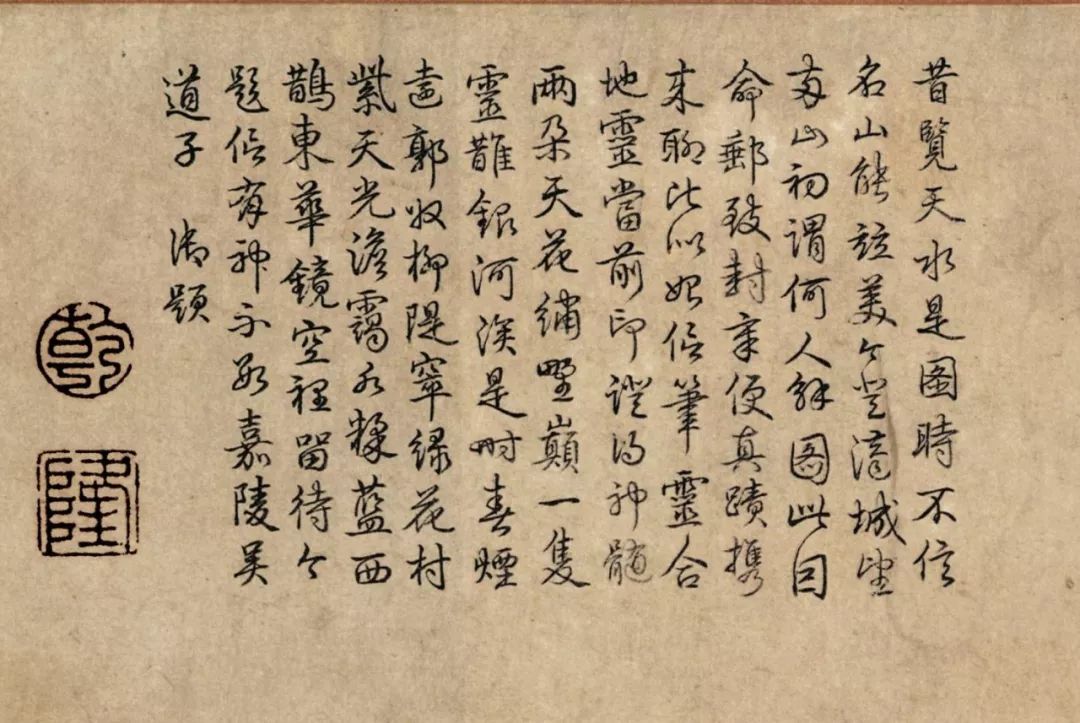 昔覽天水是圖時不信
名山能竝美今登濟城望
兩山初謂何人解圖此因
命郵致封章便真蹟携
來聊比似始信筆靈合
地靈當前印證得神髓
兩朵天花繡壄巔一隻
靈鵲銀河涘是時春煙
遠郭收柳隄窣綠花村
紫天光澹靄水揉藍西
鵲東華鏡空裡留待今
題信有神不數嘉陵吳
道子 御題
乾
隆